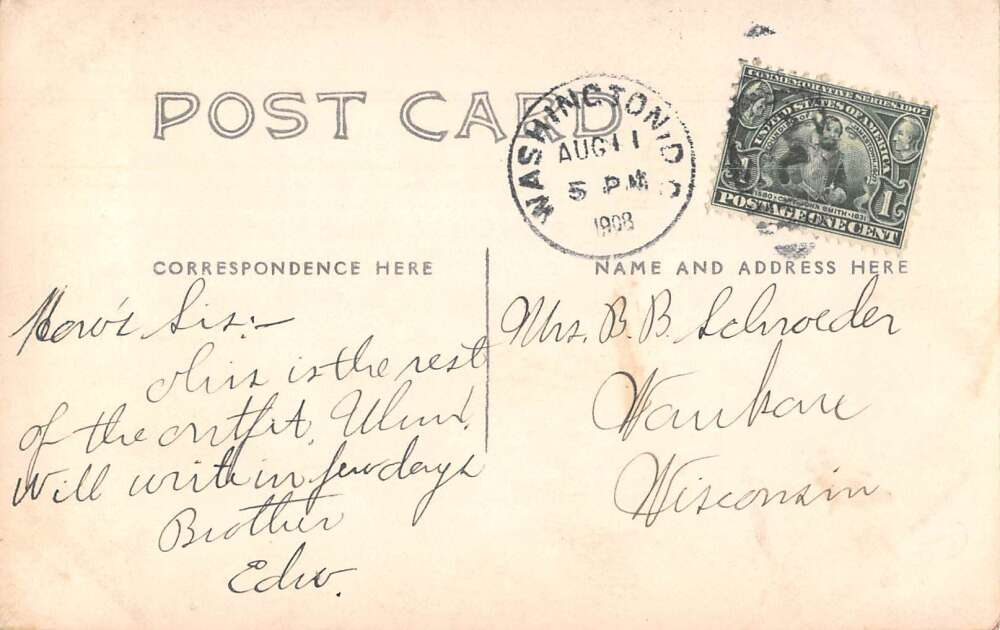 POST CARD
WASHINGTON, D.C.
AUG 11
5 PM
1908
COMMEMORATIVE SERIES 1907
UNITED STATES OF AMERICA
FOUNDING OF JAMESTOWN
1580 · CAPT. JOHN SMITH · 1631
1 1
POSTAGE ONE CENT
CORRESPONDENCE HERE
NAME AND ADDRESS HERE
How's Sis:-
This is the rest
of the outfit,
Will write in few days
Brother
Edw.
Mrs. B. B. Schroeder
Waukau
Wisconsin